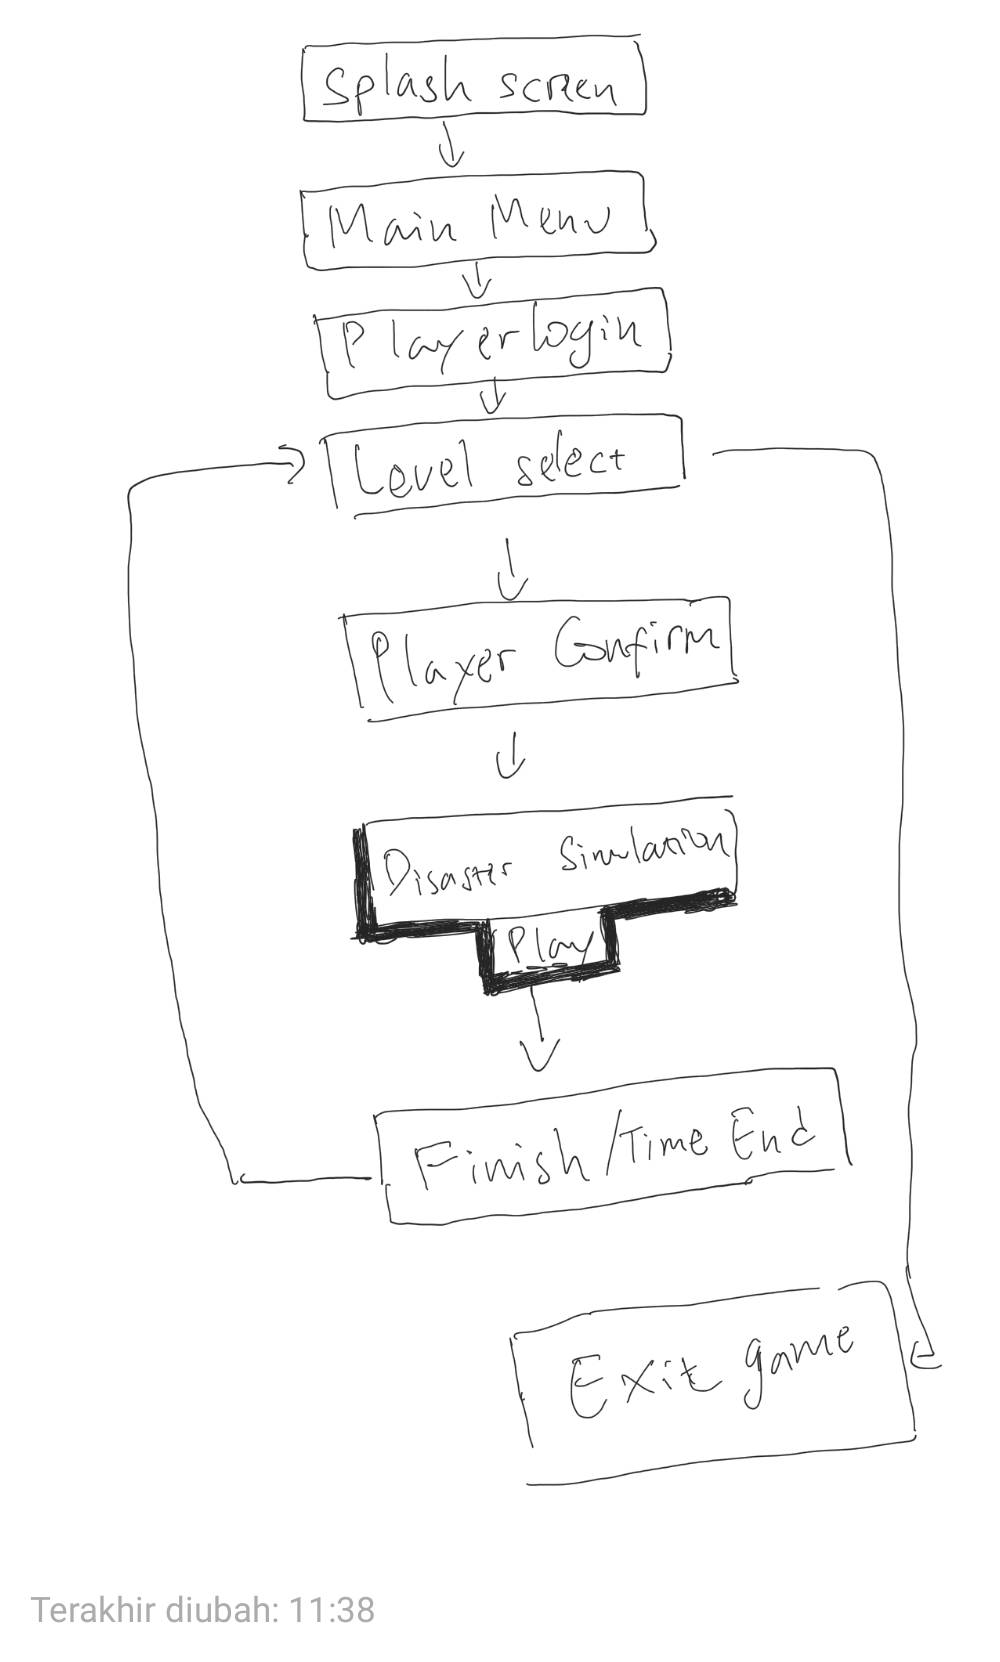 Splash screen
Main Menu
Player login
Level select
Player Confirm
Disaster Simulation
Play
Finish/Time End
Exit game
Terakhir diubah: 11:38